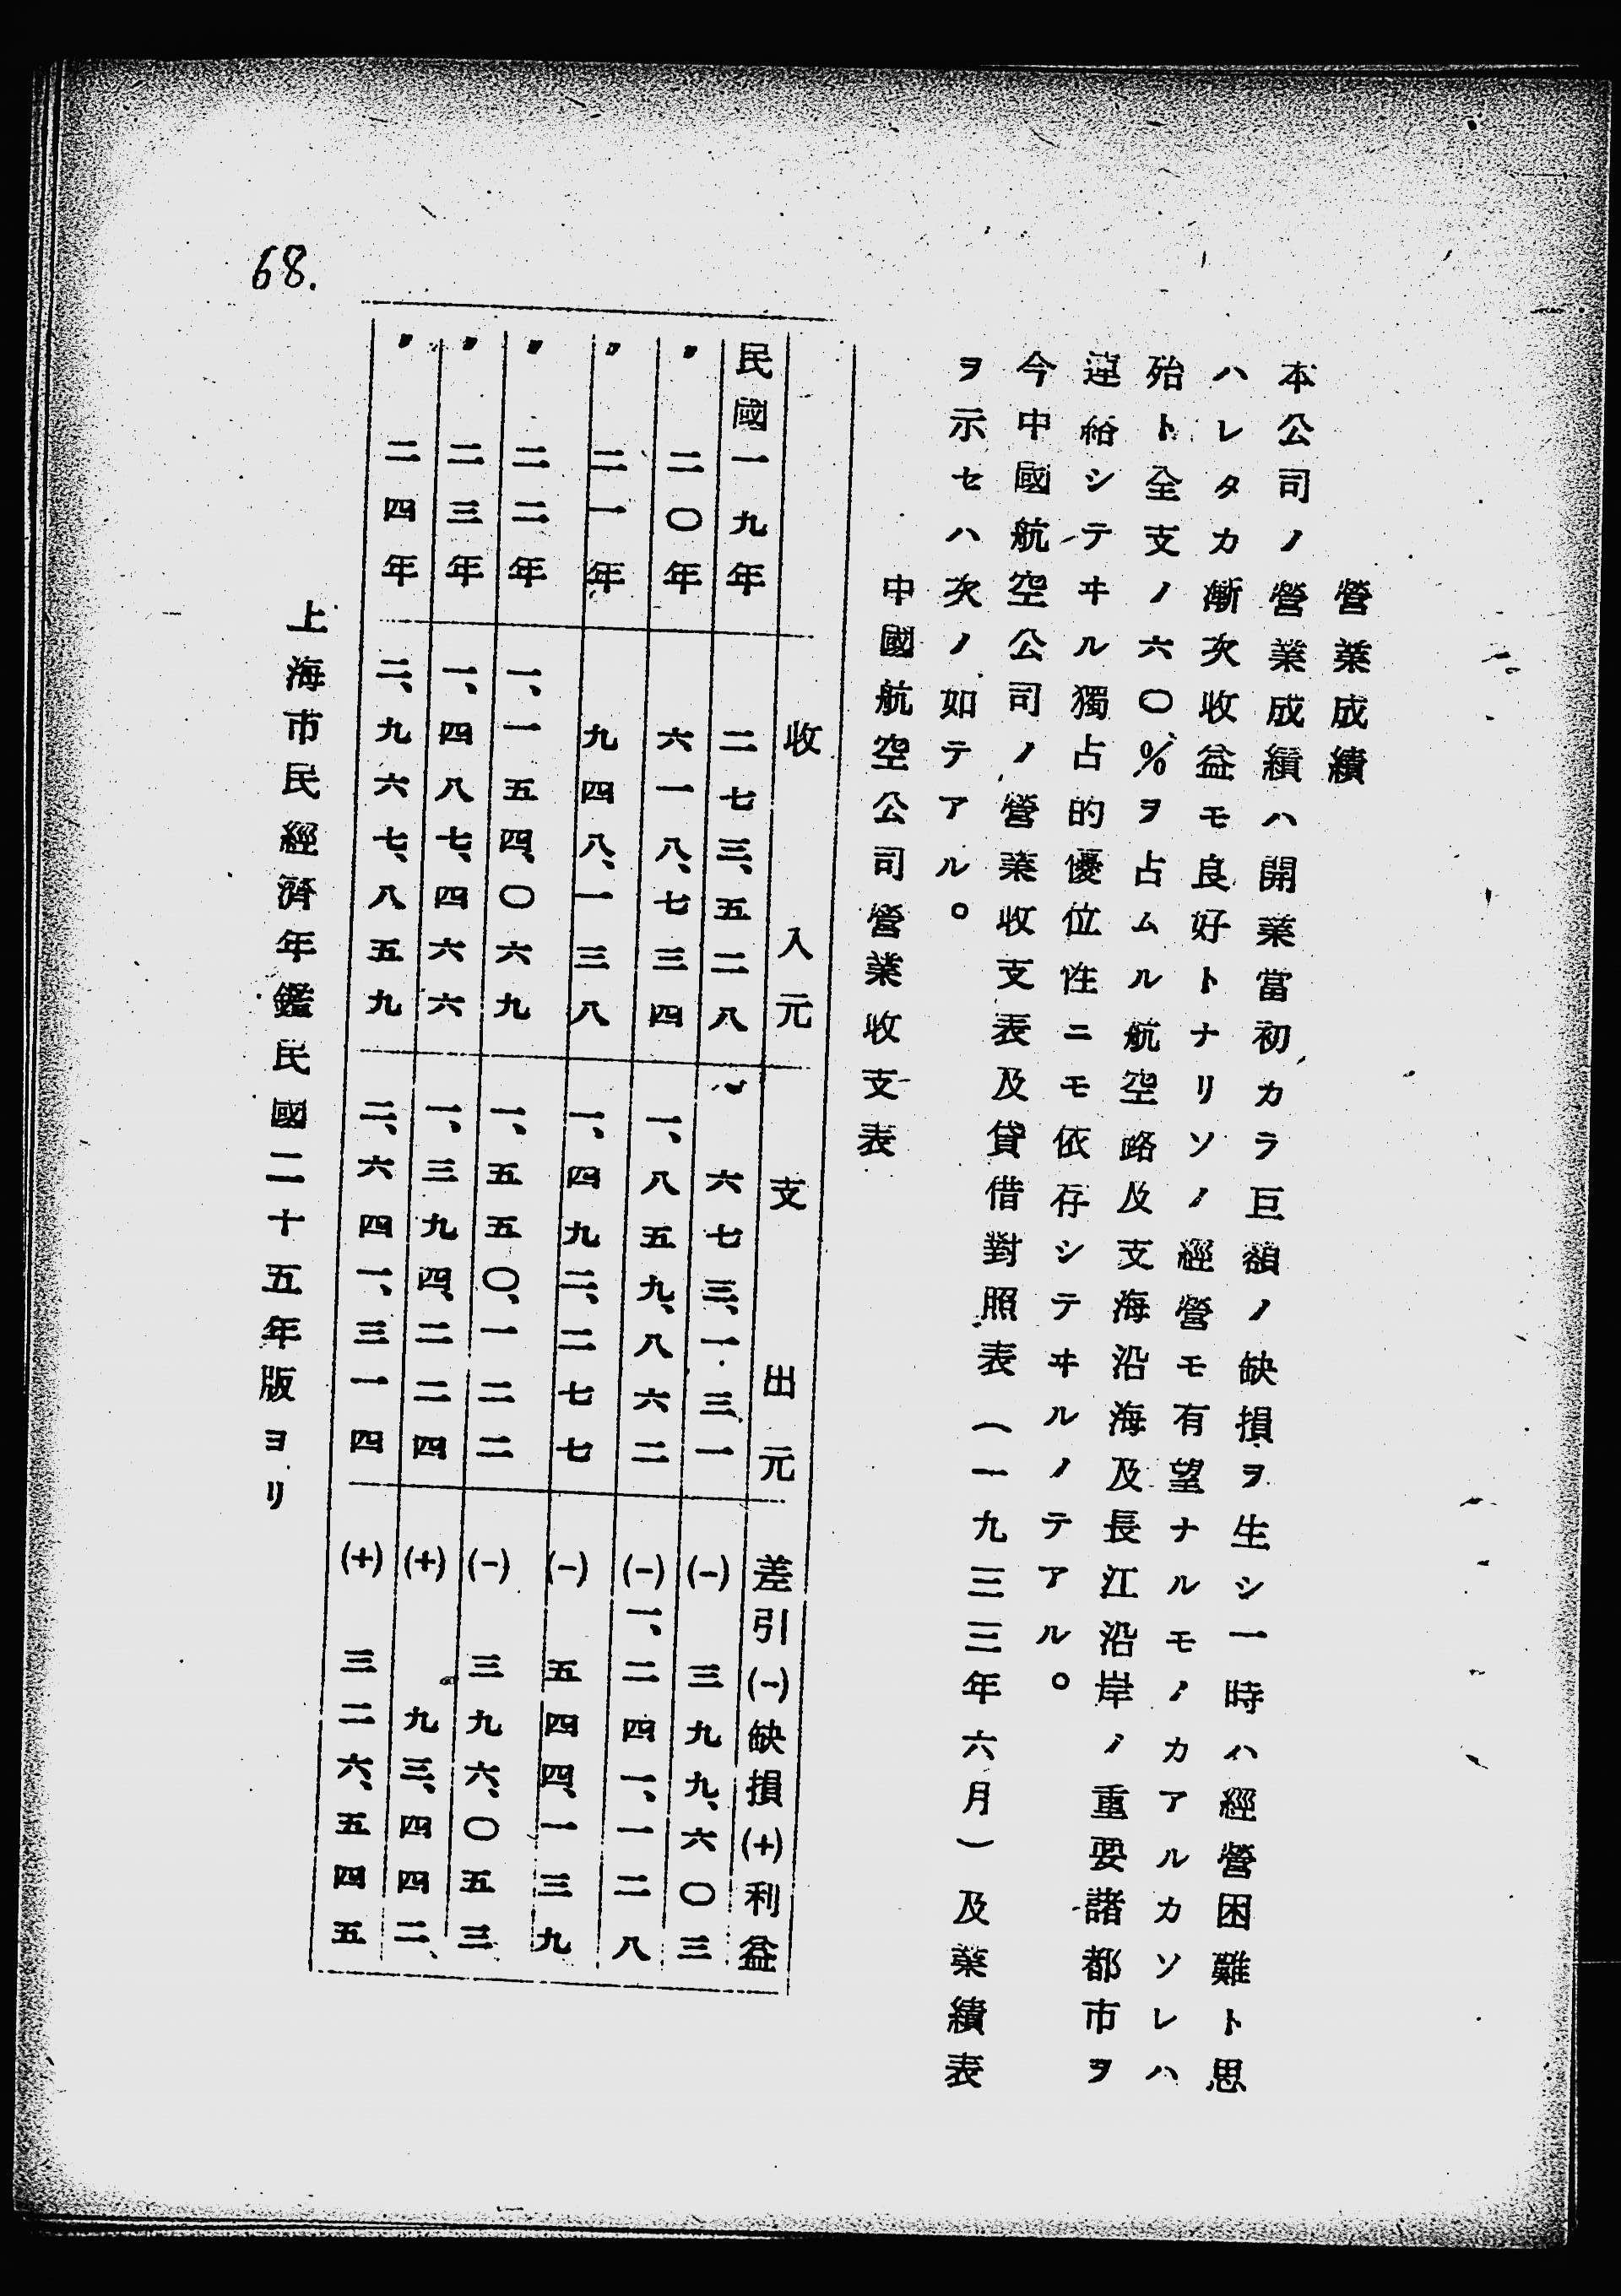 營業成績
本公司ノ營業成績ハ開業當初カラ巨額ノ缺損ヲ生シ一時ハ經營困難ト思
ハレタカ漸次收益モ良好トナリソノ經營モ有望ナルモノカアルカソレハ
殆ト全支ノ六〇%ヲ占ムル航空路及支海沿海及長江沿岸ノ重要諸都市ヲ
連絡シテヰル獨占的優位性ニモ依存シテヰルノテアル。
今中國航空公司ノ營業收支表及貸借對照表(一九三三年六月)及業績表
ヲ示セハ次ノ如テアル。
中國航空公司營業收支表
收入元 支出元 差引(-)缺損(+)利益
民國一九年 二七三、五二八 六七三、一三一 (-)三九九、六〇三
〃二〇年 六一八、七三四 一、八五九、八六二 (-)一、二四一、一二八
〃二一年 九四八、一三八 一、四九二、二七七 (-)五四四、一三九
〃二二年 一、一五四、〇六九 一、五五〇、一二二 (-)三九六、〇五三
〃二三年 一、四八七、四六六 一、三九四、二二四 (+)九三、四四二
〃二四年 二、九六七、八五九 二、六四一、三一四 (+)三二六、五四五
上海市民經濟年鑑民國二十五年版ヨリ
68.